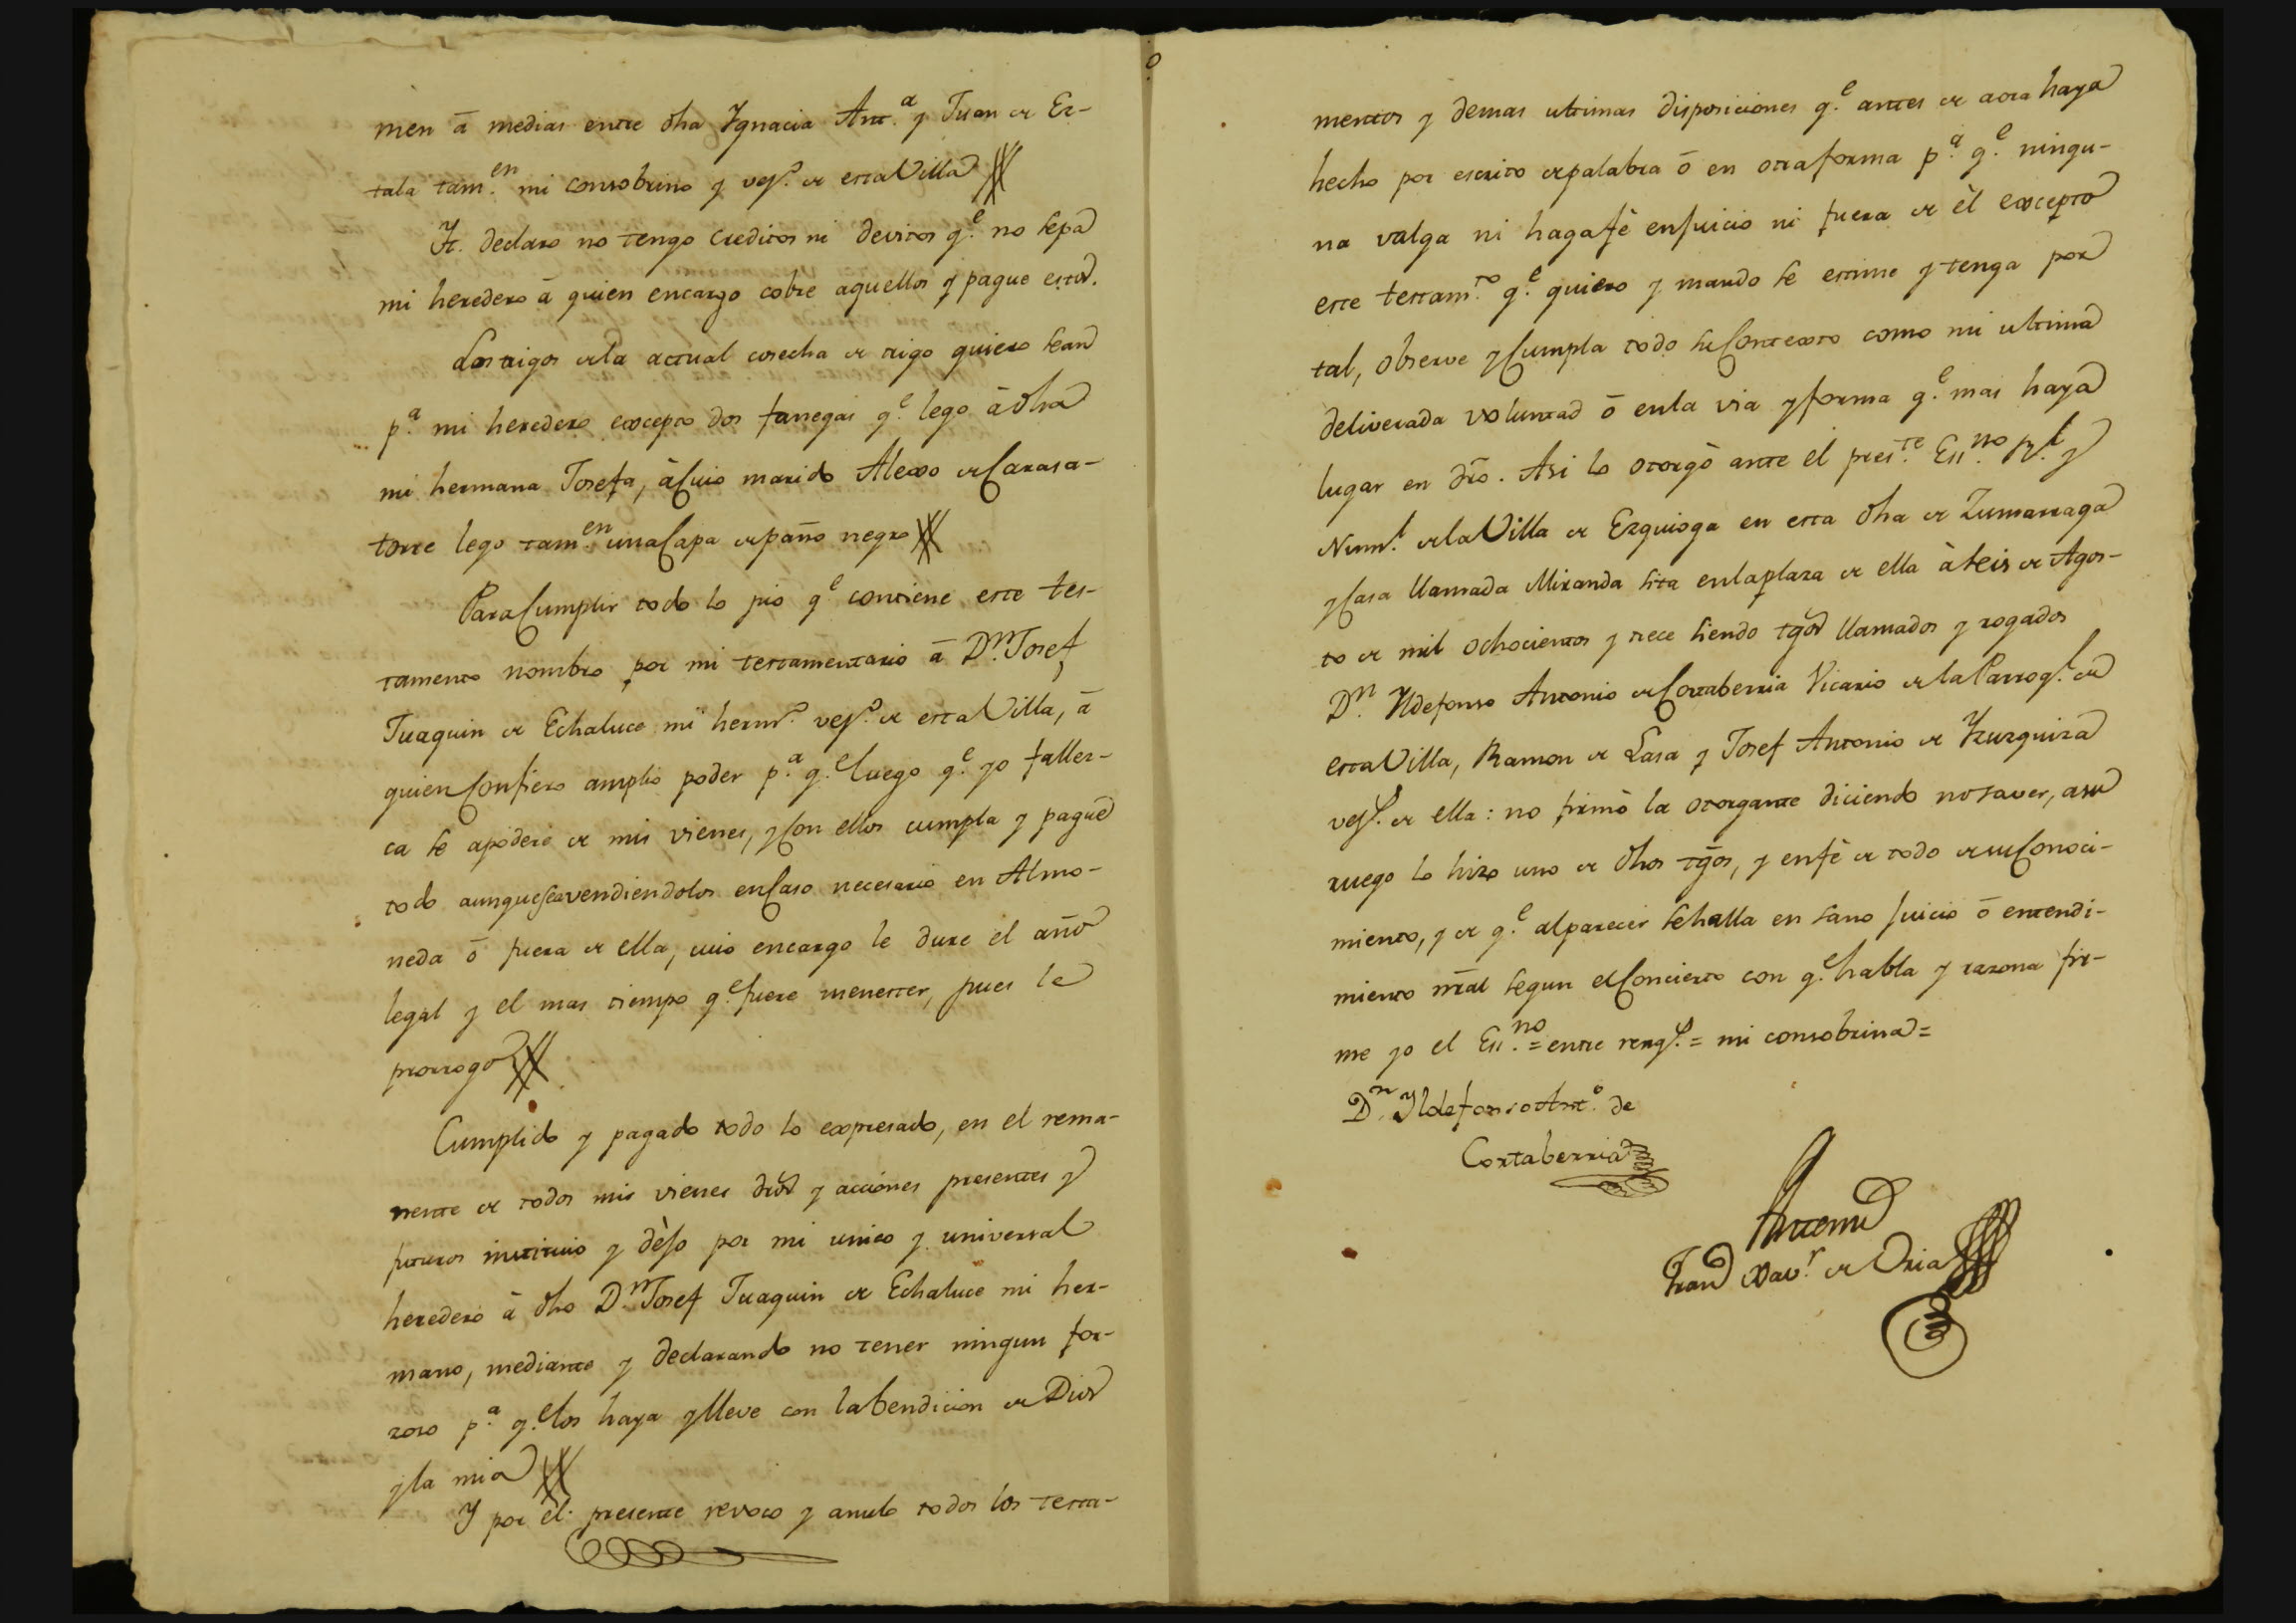 men á medias entre dha Ygnacia Ant.ª y Juan de Es-
tala tam.en mi consobrino y vez.º de esta Villa
Yt. declaro no tengo creditos ni devitos q.e no sepa
mi heredero á quien encargo cobre aquellos y pague estos.
Los trigos de la actual cosecha de trigo quiero sean
p.ª mi heredero excepto dos fanegas q.e lego á dha
mi hermana Josefa, à cuio marido Alexo de Carasa-
torre lego tam.en una Capa de paño negro
Para Cumplir todo lo pio q.e contiene este tes-
tamento nombro por mi testamentario á D.n Josef
Juaquin de Echaluce mi herm.º vez.º de esta Villa, á
quien Confiero amplio poder p.ª q.e luego q.e yo falles-
ca se apodere de mis vienes, y Con ellos cumpla y pague
todo aunque sea vendiendolos en Caso necesario en Almo-
neda ó fuera de ella, cuio encargo le dure el año
legal y el mas tiempo q.e fuere menester, pues le
prorrogo
Cumplido y pagado todo lo expresado, en el rema-
nente de todos mis vienes dros y acciones presentes y
futuros instituio y dèjo por mi unico y universal
heredero à dho D.n Josef Juaquin de Echaluce mi her-
mano, mediante y declarando no tener ningun for-
zoso p.ª q.e los haya y lleve con la bendicion de Dios
y la mia
Y por el presente revoco y anulo todos los testa-
mentos y demas ultimas disposiciones q.e antes de aora haya
hecho por escrito de palabra ó en otra forma p.ª q.e ningu-
na valga ni haga fè en Juicio ni fuera de èl excepto
este testam.to q.e quiero y mando se estime y tenga por
tal, observe y Cumpla todo su Contexto como mi ultima
deliverada voluntad ó en la via y forma q.e mas haya
lugar en dro. Asi lo otorgò ante el pres.te Ess.no R.l y
Num.l de la Villa de Ezquioga en esta dha de Zumarraga
y Casa llamada Miranda sita en la plaza de ella à seis de Agos-
to de mil ochocientos y trece siendo tgos llamados y rogados
D.n Yldefonso Antonio de Cortaberria Vicario de la Parroq.l de
esta Villa, Ramon de Lasa y Josef Antonio de Yzuzquiza
vez.s de ella: no firmò la otorgante diciendo no saver, a su
ruego lo hizo uno de dhos tgos, y en fè de todo de su Conoci-
miento, y de q.e al parecer se halla en sano Juicio ó entendi-
miento nral segun el Concierto con q.e habla y razona fir-
me yo el Ess.no = entre reng.s = mi consobrina =
D.n Yldefonso Ant.º de
Cortaberria
Antemi
Fran Xav.r de Oria